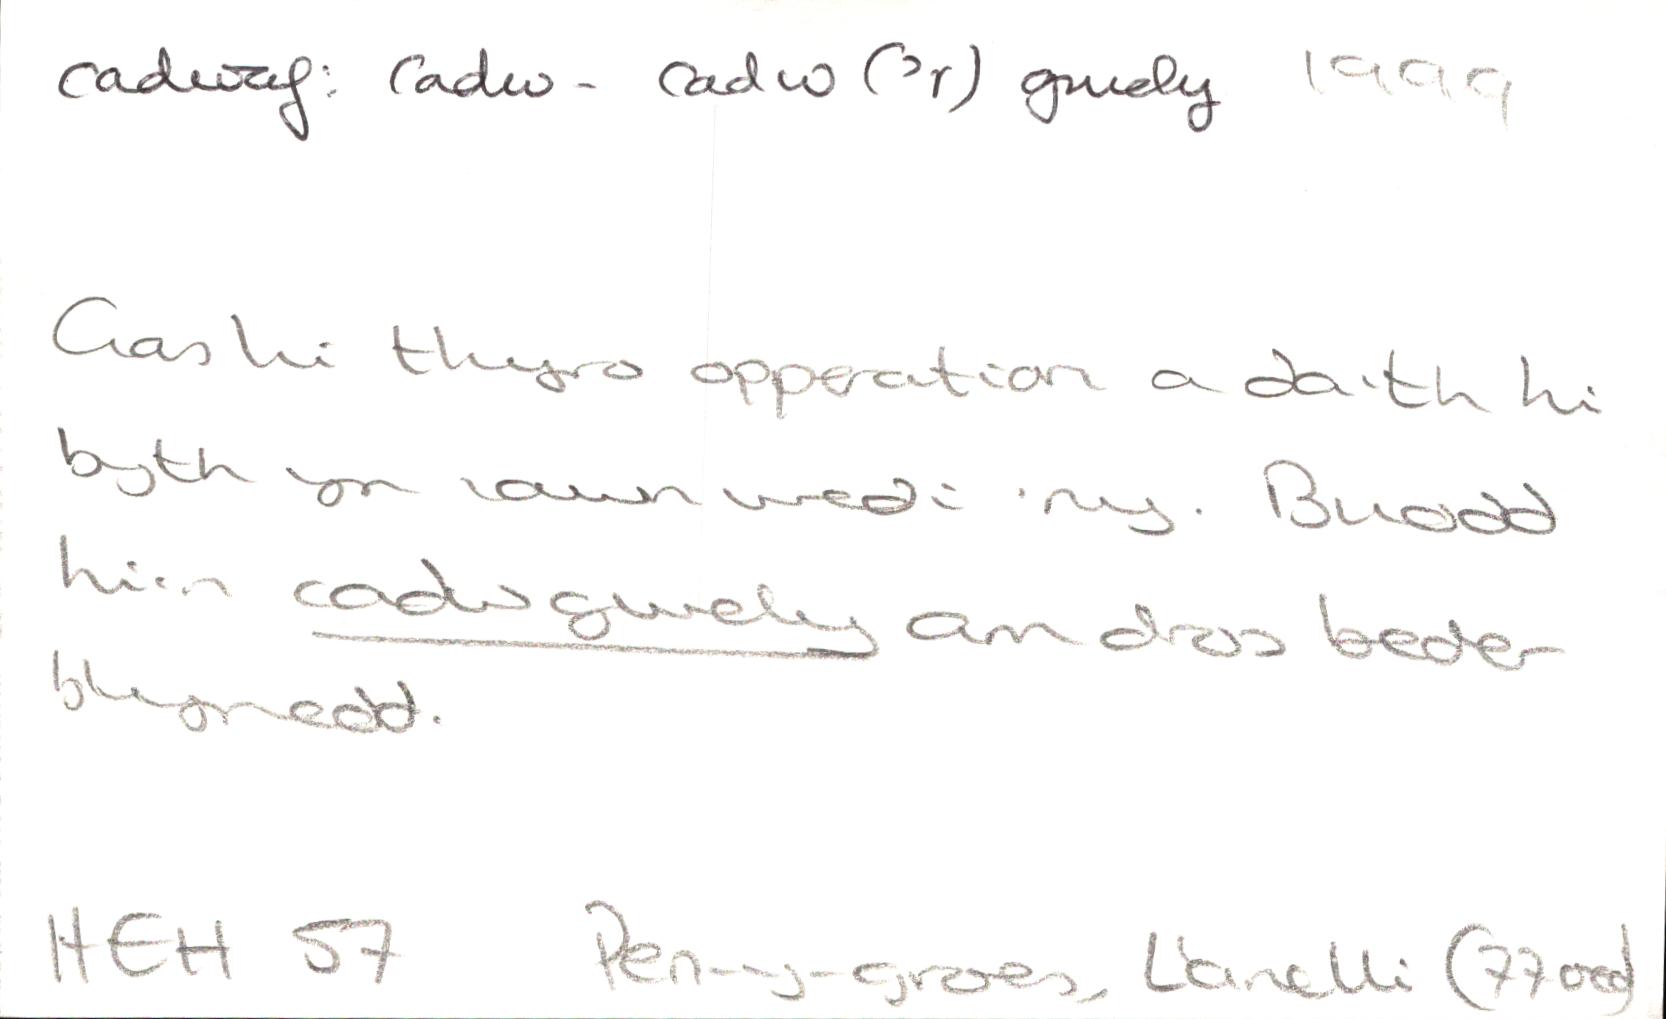 cadwaf: cadw - cadw ('r) gwely 1999
Cas hi thyro opperation a da'th hi
byth yn iawn wedi 'ny. Buodd
hi'n cadw gwely am dros beder
blynedd.
HEH 57 Pen-y-groes, Llanelli (77 oed)